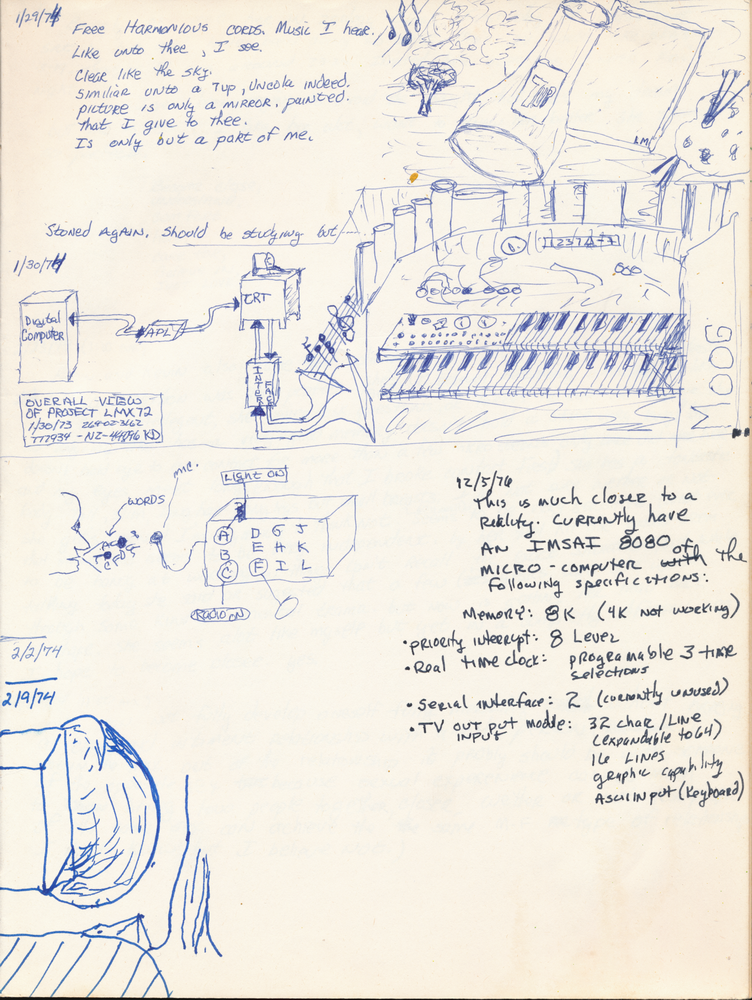 1/29/74
Free Harmonious cords. Music I hear.
Like unto thee, I see.
Clear like the sky.
Similiar unto a 7up, Uncola indeed.
picture is only a mirror, painted.
that I give to thee.
Is only but a part of me.
7up
LM
Stoned Again. Should be studying but
1/30/74
Digital
Computer
APL
CRT
INTER
FACE
OVERALL VIEW
OF PROJECT LMX72
1/30/73
MOOG
mic.
WORDS
Light on
A D G J
B E H K
C F I L
RADIO ON
12/5/76
This is much closer to a
Reality. Currently have
AN IMSAI 8080 of
MICRO-computer with the
following specifications:
Memory: 8K (4K not working)
• priority interrupt: 8 Level
• Real time clock: programable 3 time
selections
• Serial interface: 2 (currently unused)
• TV out put module: 32 char/Line
INPUT (expandable to 64)
16 Lines
graphic capability
Ascii Input (Keyboard)
2/2/74
2/9/74